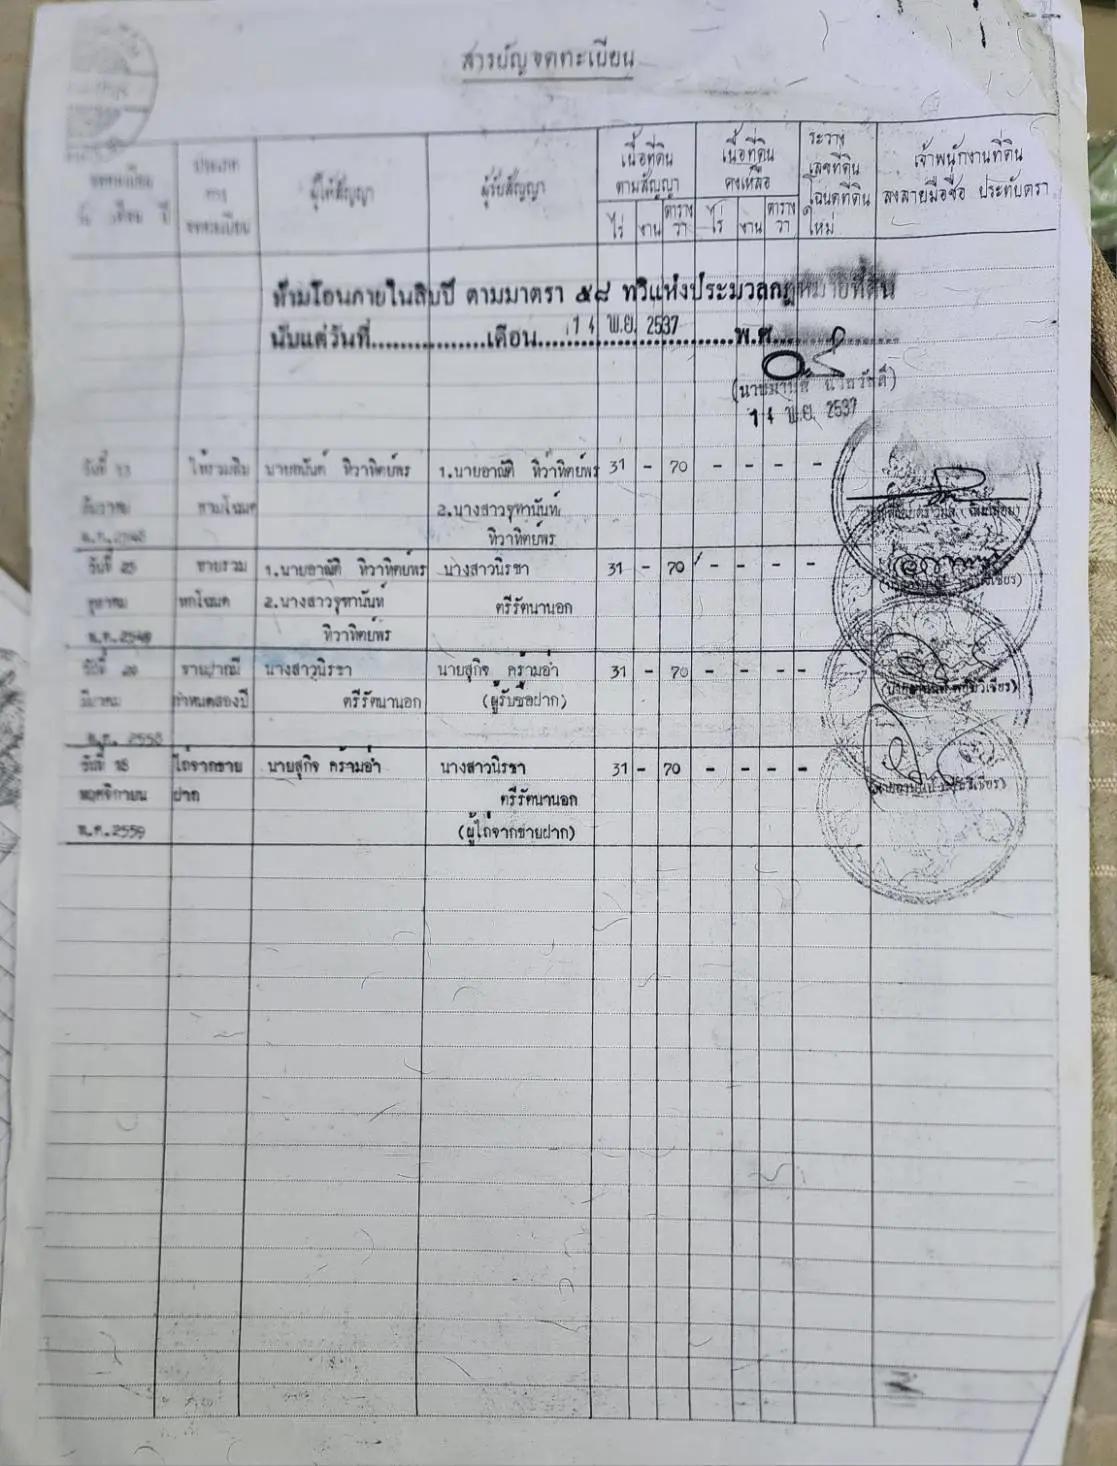 สารบัญจดทะเบียน
จดทะเบียน
วัน เดือน ปี
ประเภท
การ
จดทะเบียน
ผู้ให้สัญญา
ผู้รับสัญญา
เนื้อที่ดิน
ตามสัญญา
ไร่ งาน ตาราง
วา
เนื้อที่ดิน
คงเหลือ
ไร่ งาน ตาราง
วา
ระวาง
เลขที่ดิน
โฉนดที่ดิน
ใหม่
เจ้าพนักงานที่ดิน
ลงลายมือชื่อ ประทับตรา
ห้ามโอนภายในสิบปี ตามมาตรา ๕๘ ทวิแห่งประมวลกฎหมายที่ดิน
นับแต่วันที่................เดือน 14 พ.ย. 2537 พ.ศ.
14 พ.ย. 2537
วันที่ นายอนันต์ ทิวาทิตย์พร 1.นายอาณัติ ทิวาทิตย์พร 31 - 70 - - - -
ธันวาคม สามโฉนด 2.นางสาวจุฑานันท์
ทิวาทิตย์พร
วันที่ 25 ขายรวม 1.นายอาณัติ ทิวาทิตย์พร นางสาวนิรชา 31 - 70 - - - -
ตุลาคม หกโฉนด 2.นางสาวจุฑานันท์ ตรีรัตนานอก
พ.ศ.2549 ทิวาทิตย์พร
วันที่ ขายฝากมี นางสาวนิรชา นายสุกิจ คร้ามอ่ำ 31 - 70 - - - -
มีนาคม กำหนดสองปี ตรีรัตนานอก (ผู้รับซื้อฝาก)
พ.ศ. 2558
วันที่ 18 ไถ่จากขาย นายสุกิจ คร้ามอ่ำ นางสาวนิรชา 31 - 70 - - - -
พฤศจิกายน ฝาก ตรีรัตนานอก
พ.ศ.2559 (ผู้ไถ่จากขายฝาก)